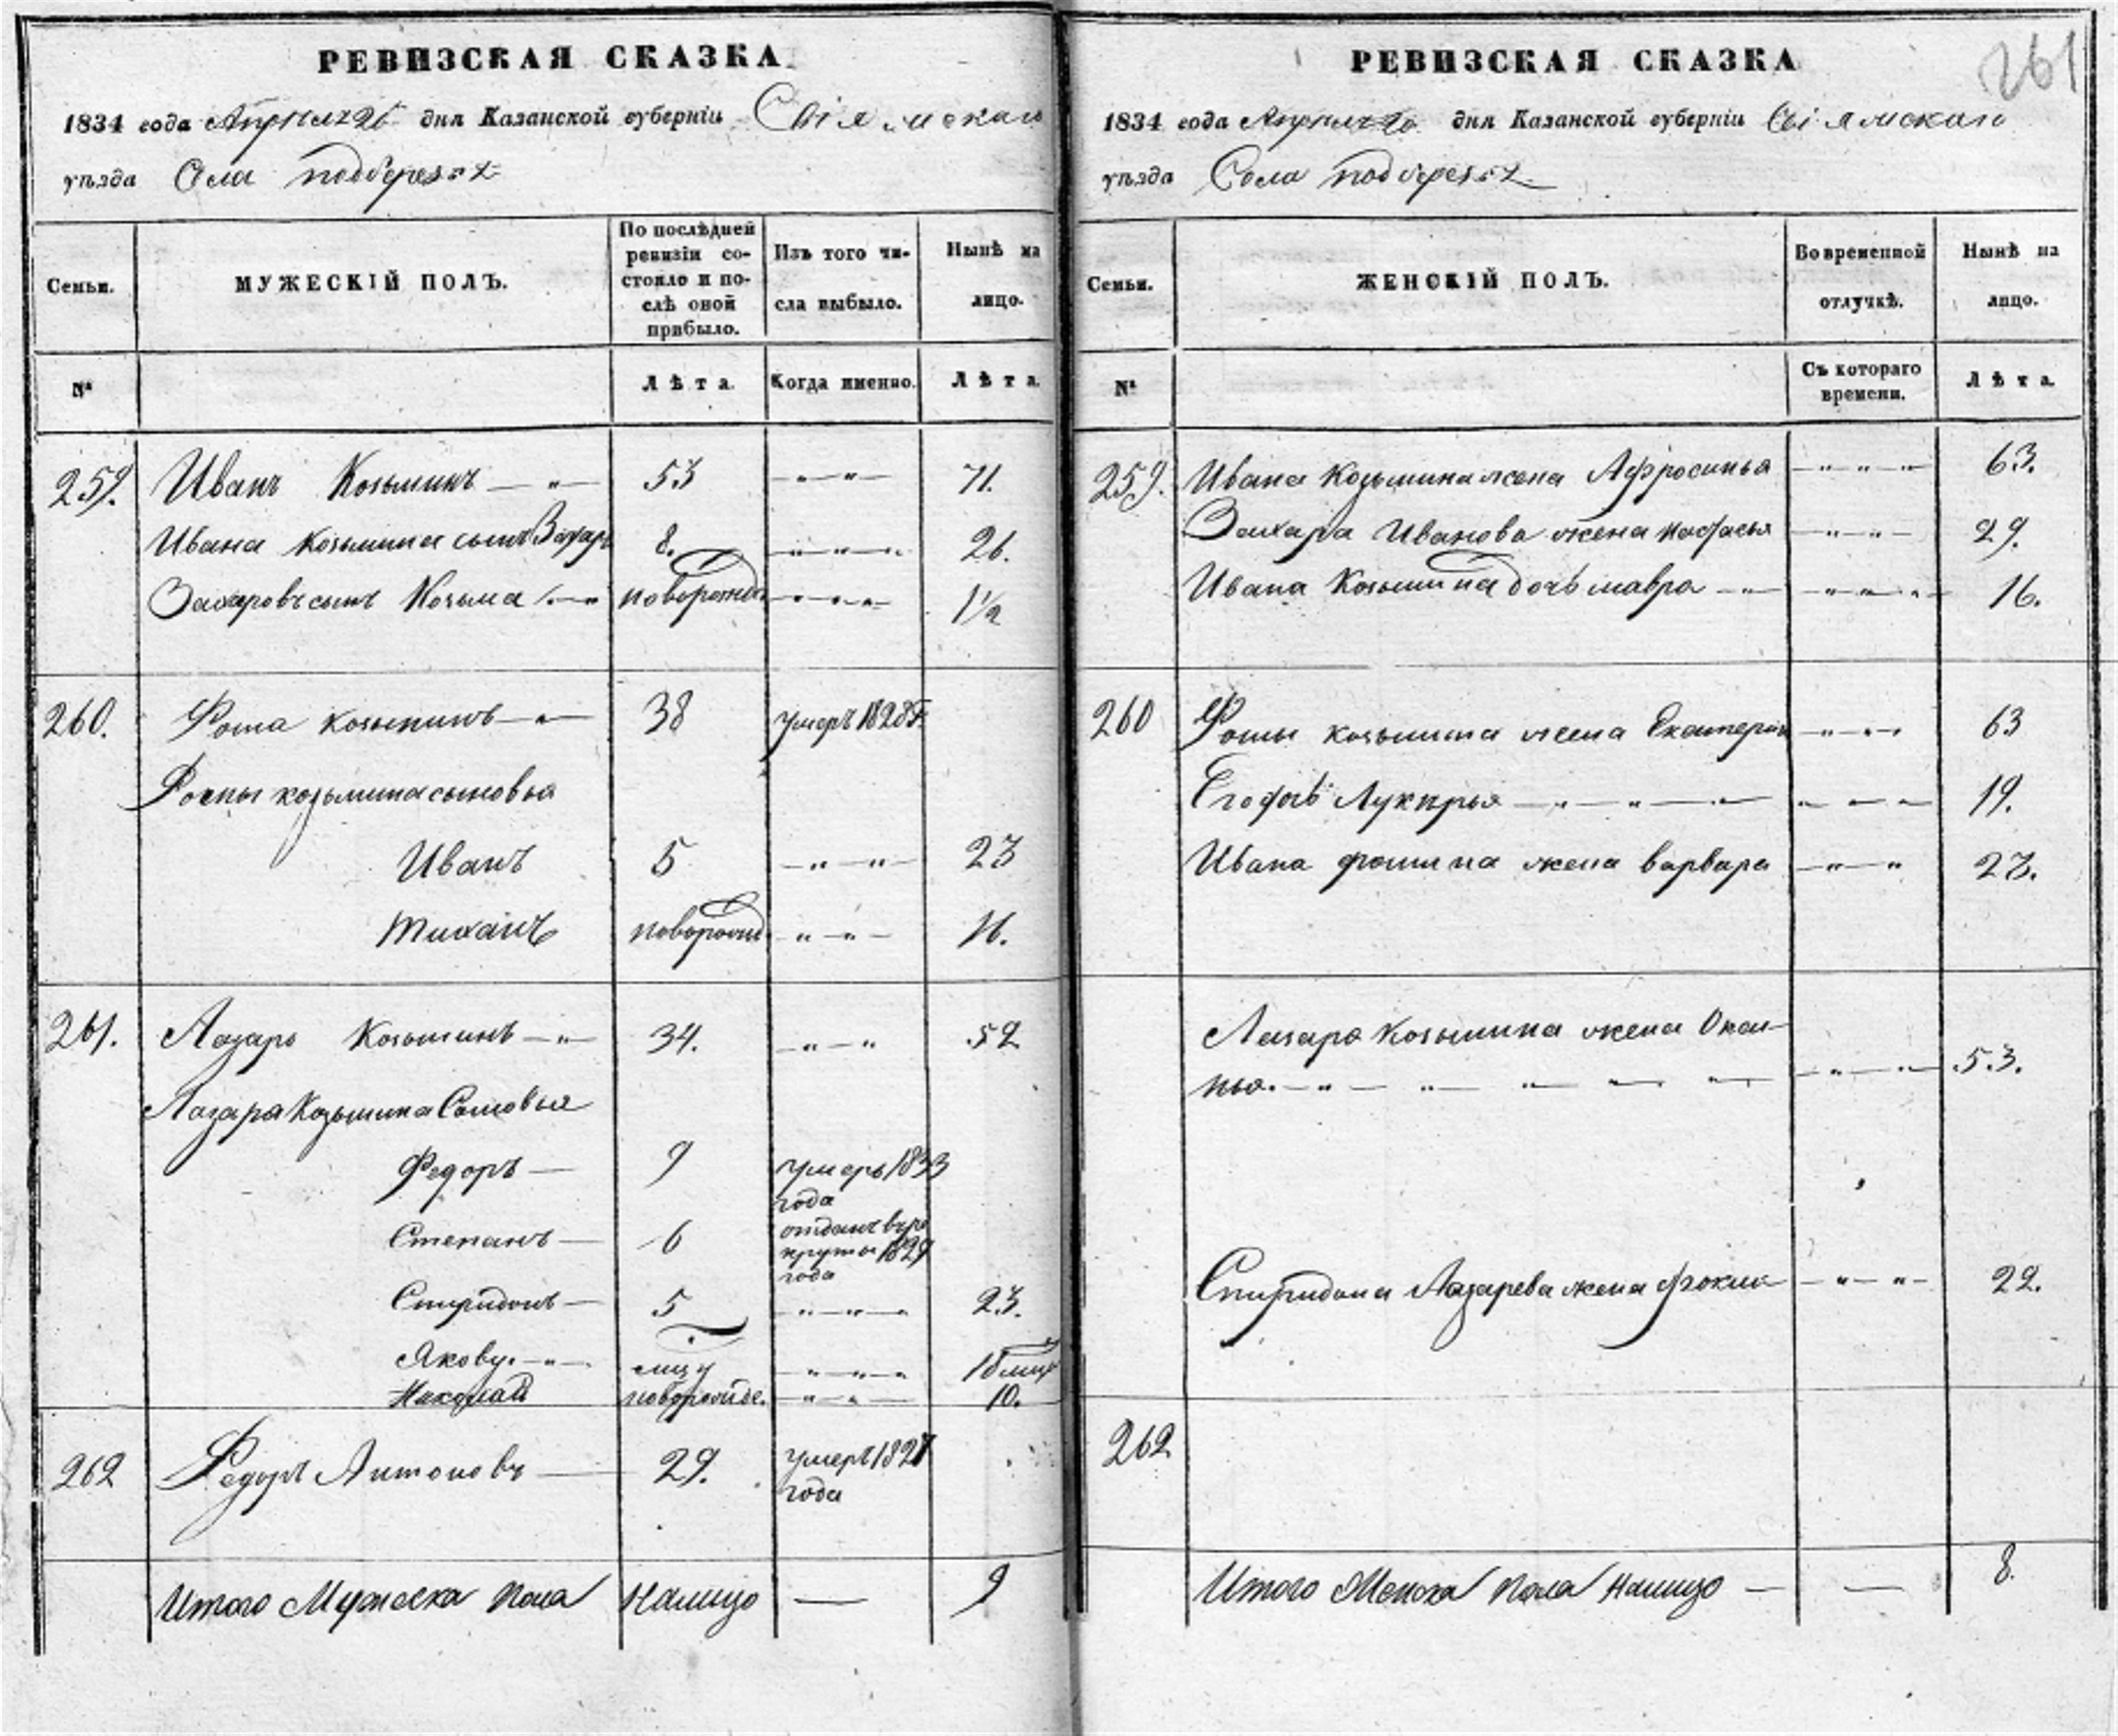 261
РЕВИЗСКАЯ СКАЗКА
1834 года Апреля 26 дня Казанской губерніи Свіяжскаго
уѣзда Села подберезья
Семьи.
МУЖЕСКІЙ ПОЛЪ.
По послѣдней ревизіи состояло и послѣ оной прибыло.
Изъ того числа выбыло.
Нынѣ на лицо.
№
Лѣта.
Когда именно.
Лѣта.
259. Иванъ Козьминъ 53 71.
Ивана Козьмина сынъ Захаръ 8. 26.
Захаровъ сынъ Козьма новорожд. 1½
260. Фома козьминъ 38 умеръ 1828 г.
Фомы козьмина сыновья
Иванъ 5 23
новорожд 16.
261. Лазарь Козьминъ 34. 52
Лазаря Козьмина Сыновья
Федоръ 9 умеръ 1833
года
Степанъ 6 отданъ врекруты 1829
года
Спиридонъ 5 23.
Яковъ
Николай новорожде. 10.
262 Федоръ Антоновъ 29. умеръ 1827
года
Итого Мужеска Пола Налицо 9
РЕВИЗСКАЯ СКАЗКА
1834 года Апреля 26 дня Казанской губерніи Свіяжскаго
уѣзда Села подберезья
Семьи.
ЖЕНСКІЙ ПОЛЪ.
Во временной отлучкѣ.
Нынѣ на лицо.
№
Съ котораго времени.
Лѣта.
259. Ивана Козьмина жена Афросинья 63.
Захара Иванова жена настасья 29.
Ивана Козьмина дочь мавра 16.
260 Фомы козьмина жена Екатерина 63
19.
Ивана фомина жена варвара 23.
Лазаря Козьмина жена
53.
Спиридона Лазарева жена фокла 22.
262
Итого Женска Пола Налицо 8.